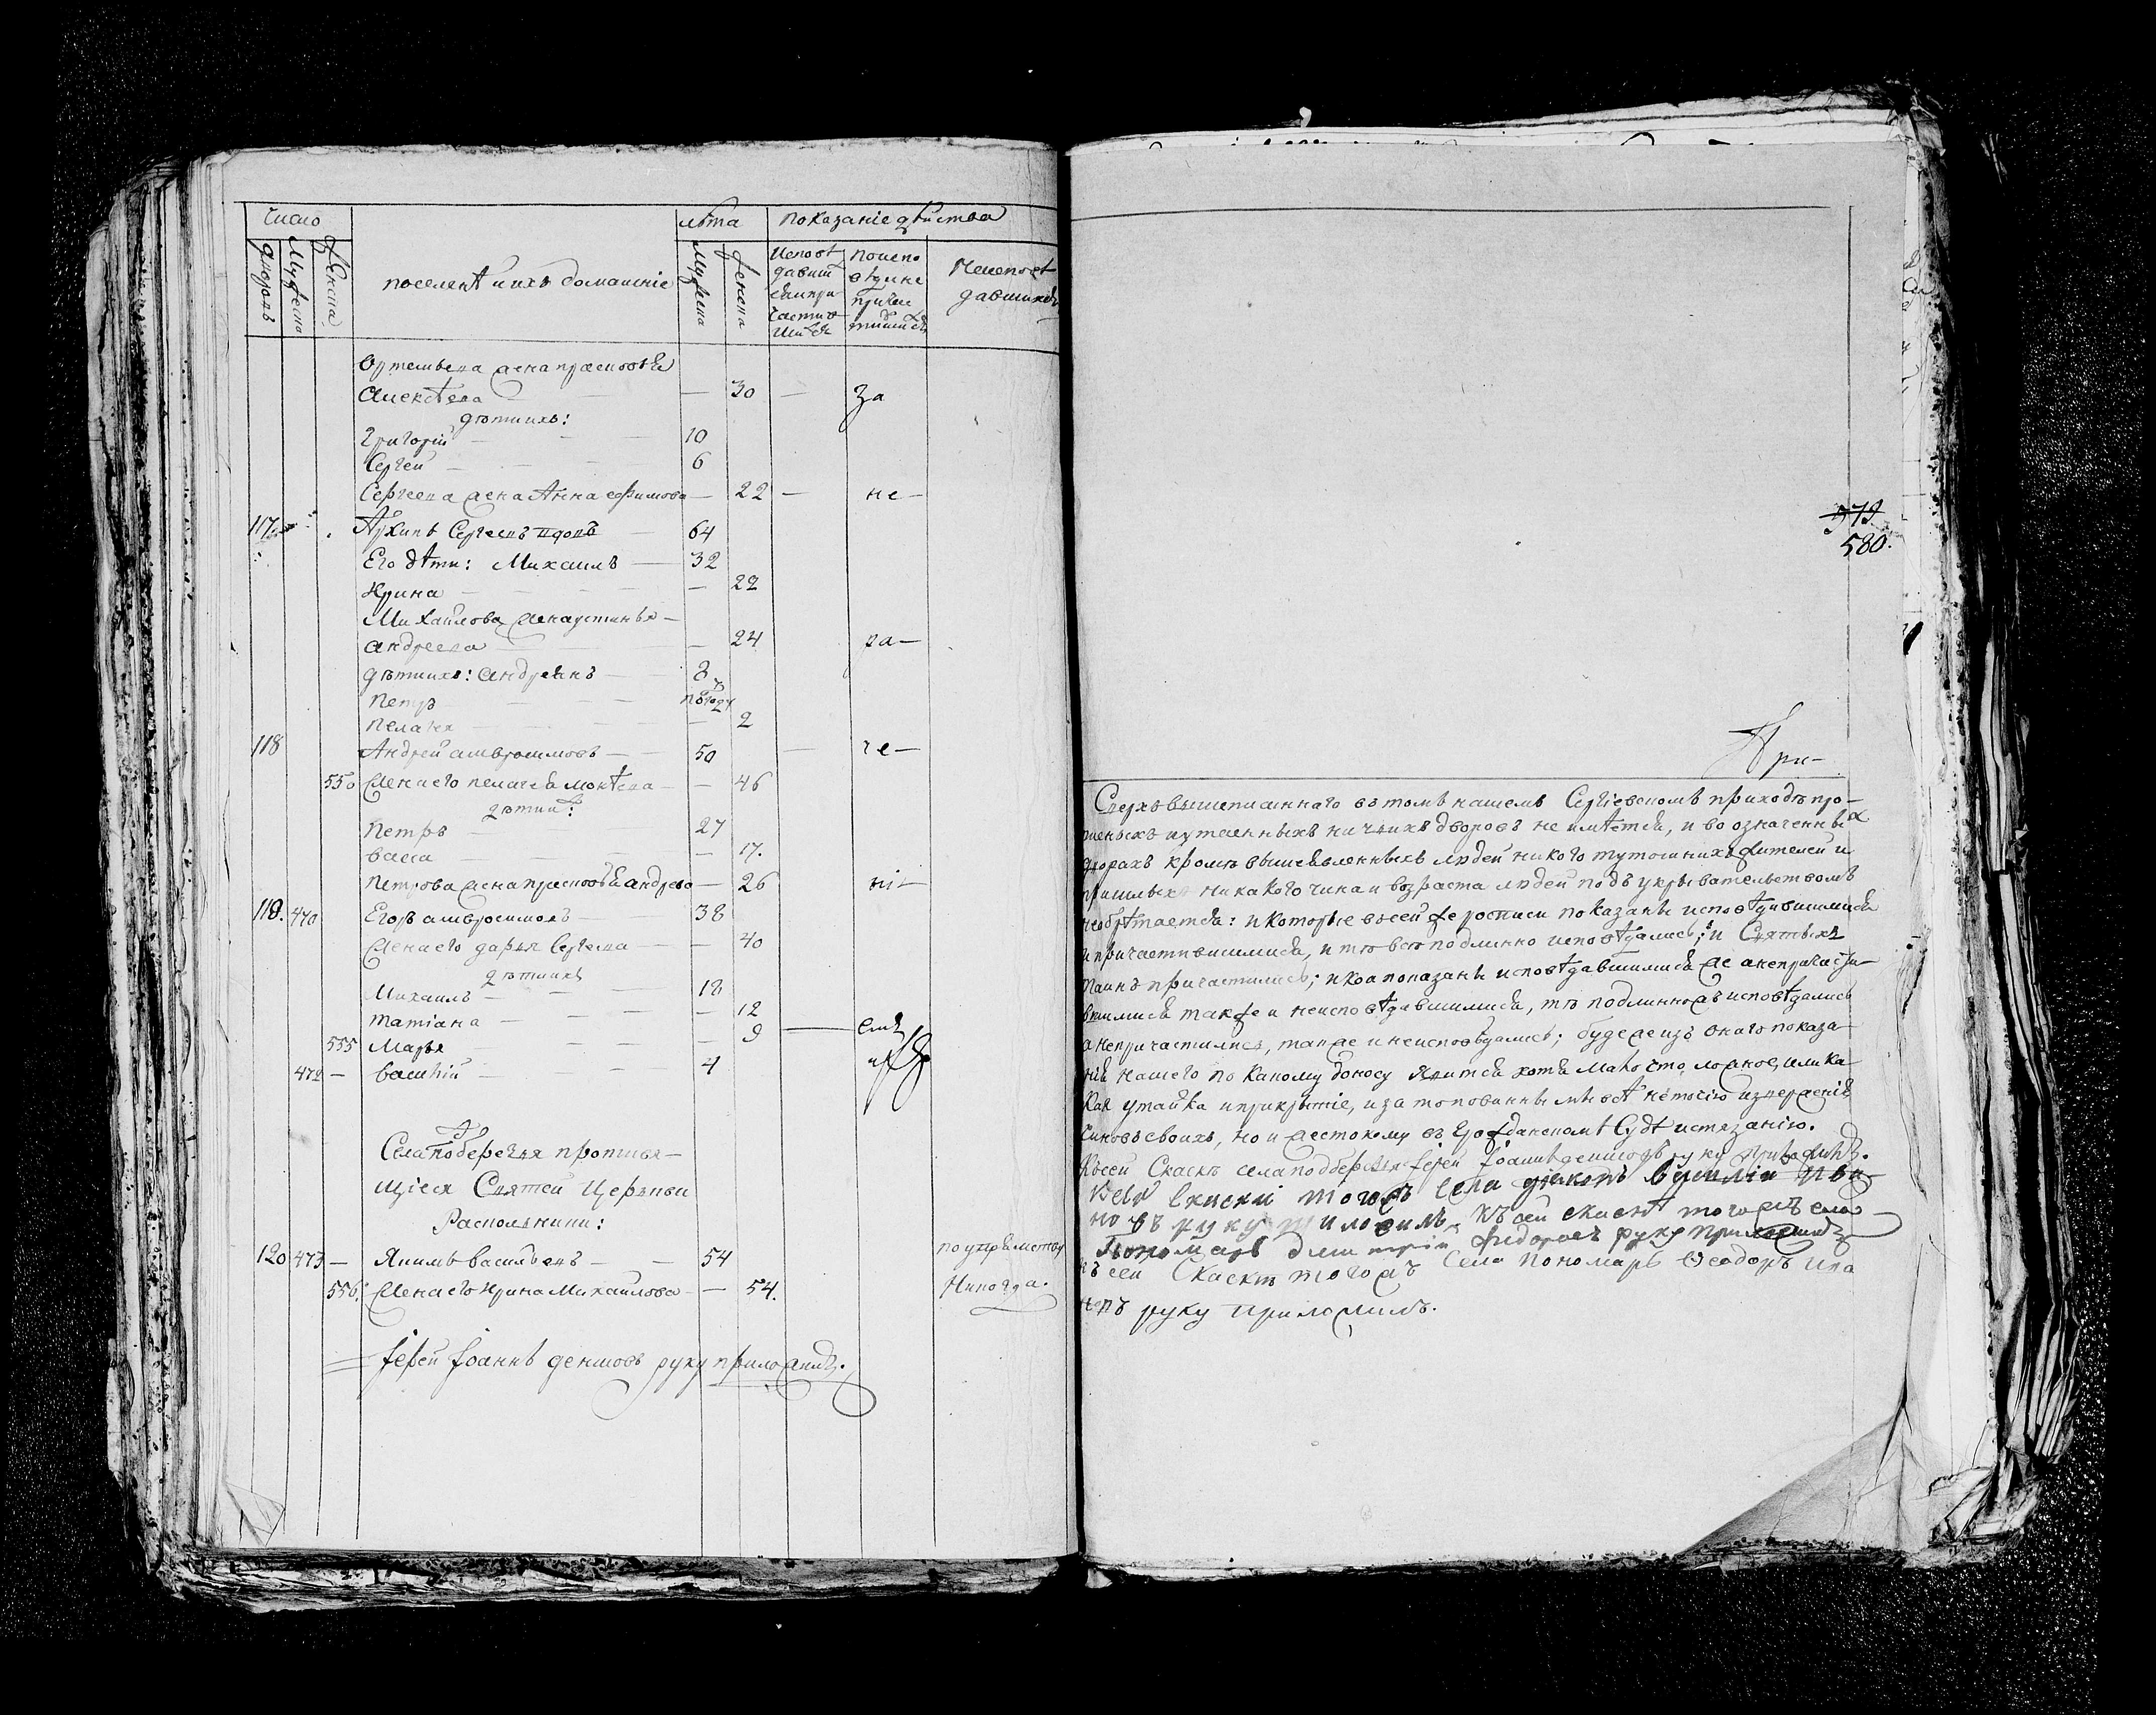 Число
лѣта
показаніе дѣйства
дворовъ
Мужеска
женска
поселяне и ихъ домашніе
Мужеска
женска
Исповѣ
давши
ся и при
частив
шися
поиспо
вѣди не
причас
тившися
Неисповѣ
давшихся
Артемьева жена прасковья
Алексѣева — 30 — За
дѣти ихъ:
Григорій — 10
Сергей — 6
Сергеева жена Анна ефимова — 22 — не —
117 Архипъ Сергеевъ вдовъ — 64
Его дѣти: Михаилъ — 32
Ирина — 22
Михайлова жена устинья —
андреева — 24 ра —
дѣти ихъ: андреянъ — 8
Петръ — полгоду
Пелагея — 2
118 Андрей амвросимовъ — 50 — че —
550 Жена его пелагея мокѣева — 46
дѣти ихъ:
Петръ — 27
васса — 17.
Петрова жена прасковья андреева — 26 ні —
119. 470 Егоръ амвросимовъ — 38
Жена его дарья Сергеева — 40
дѣти ихъ
Михаилъ — 18
татіана — 12
555 Марья — 9
472 — василій — 4
Села подберезья противя—
щіеся Святей Церькви
Раскольники:
120 473 — Якимъ васильевъ — 54 по упрямству
556. Жена его Ирина Михайлова — 54. Никогда.
Іерей Іоаннъ денисовъ руку приложилъ.
579
580.
При—
Сверхъ вышеписаннаго въ томъ нашемъ Сергіевскомъ приходѣ про—
писныхъ и утаенныхъ ничьихъ дворовъ не имѣется, и во означенныхъ
дворахъ кромѣ вышеявленныхъ людей никого тутошнихъ жителей и
пришлыхъ никакого чина и возраста людей подъ укрывательствомъ
необрѣтается: и которые въ сей же росписи показаны исповѣдавшимися
и причастившимися, и тѣ всѣ подлинно исповѣдались, и Святыхъ
таинъ причастились; и коя показаны исповѣдавшимися же а непричасти—
вшимися также и неисповѣдавшимися, тѣ подлинно жъ исповѣдались
а непричастились, также и неисповѣдались; буде же изъ онаго показа—
нія нашего по какому доносу явится хотя мало что ложное, или ка—
кая утайка и прикрытіе, и за то повинны мы не токмо изверженію
чиновъ своихъ, но и жестокому въ Гражданскомъ Судѣ истязанію.
Къ сей Скаскѣ села подберезья іерей Іоаннъ денисовъ руку приложилъ.
Ксей скаски тогожъ села діяконъ василіи ива
новъ руку приложилъ. Къ сей скаскѣ тогожъ села
Пономарь димитрій федоровъ руку приложилъ
къ сей Скаскѣ тогожъ Села пономарь Ѳеодоръ ива
новъ руку приложилъ.